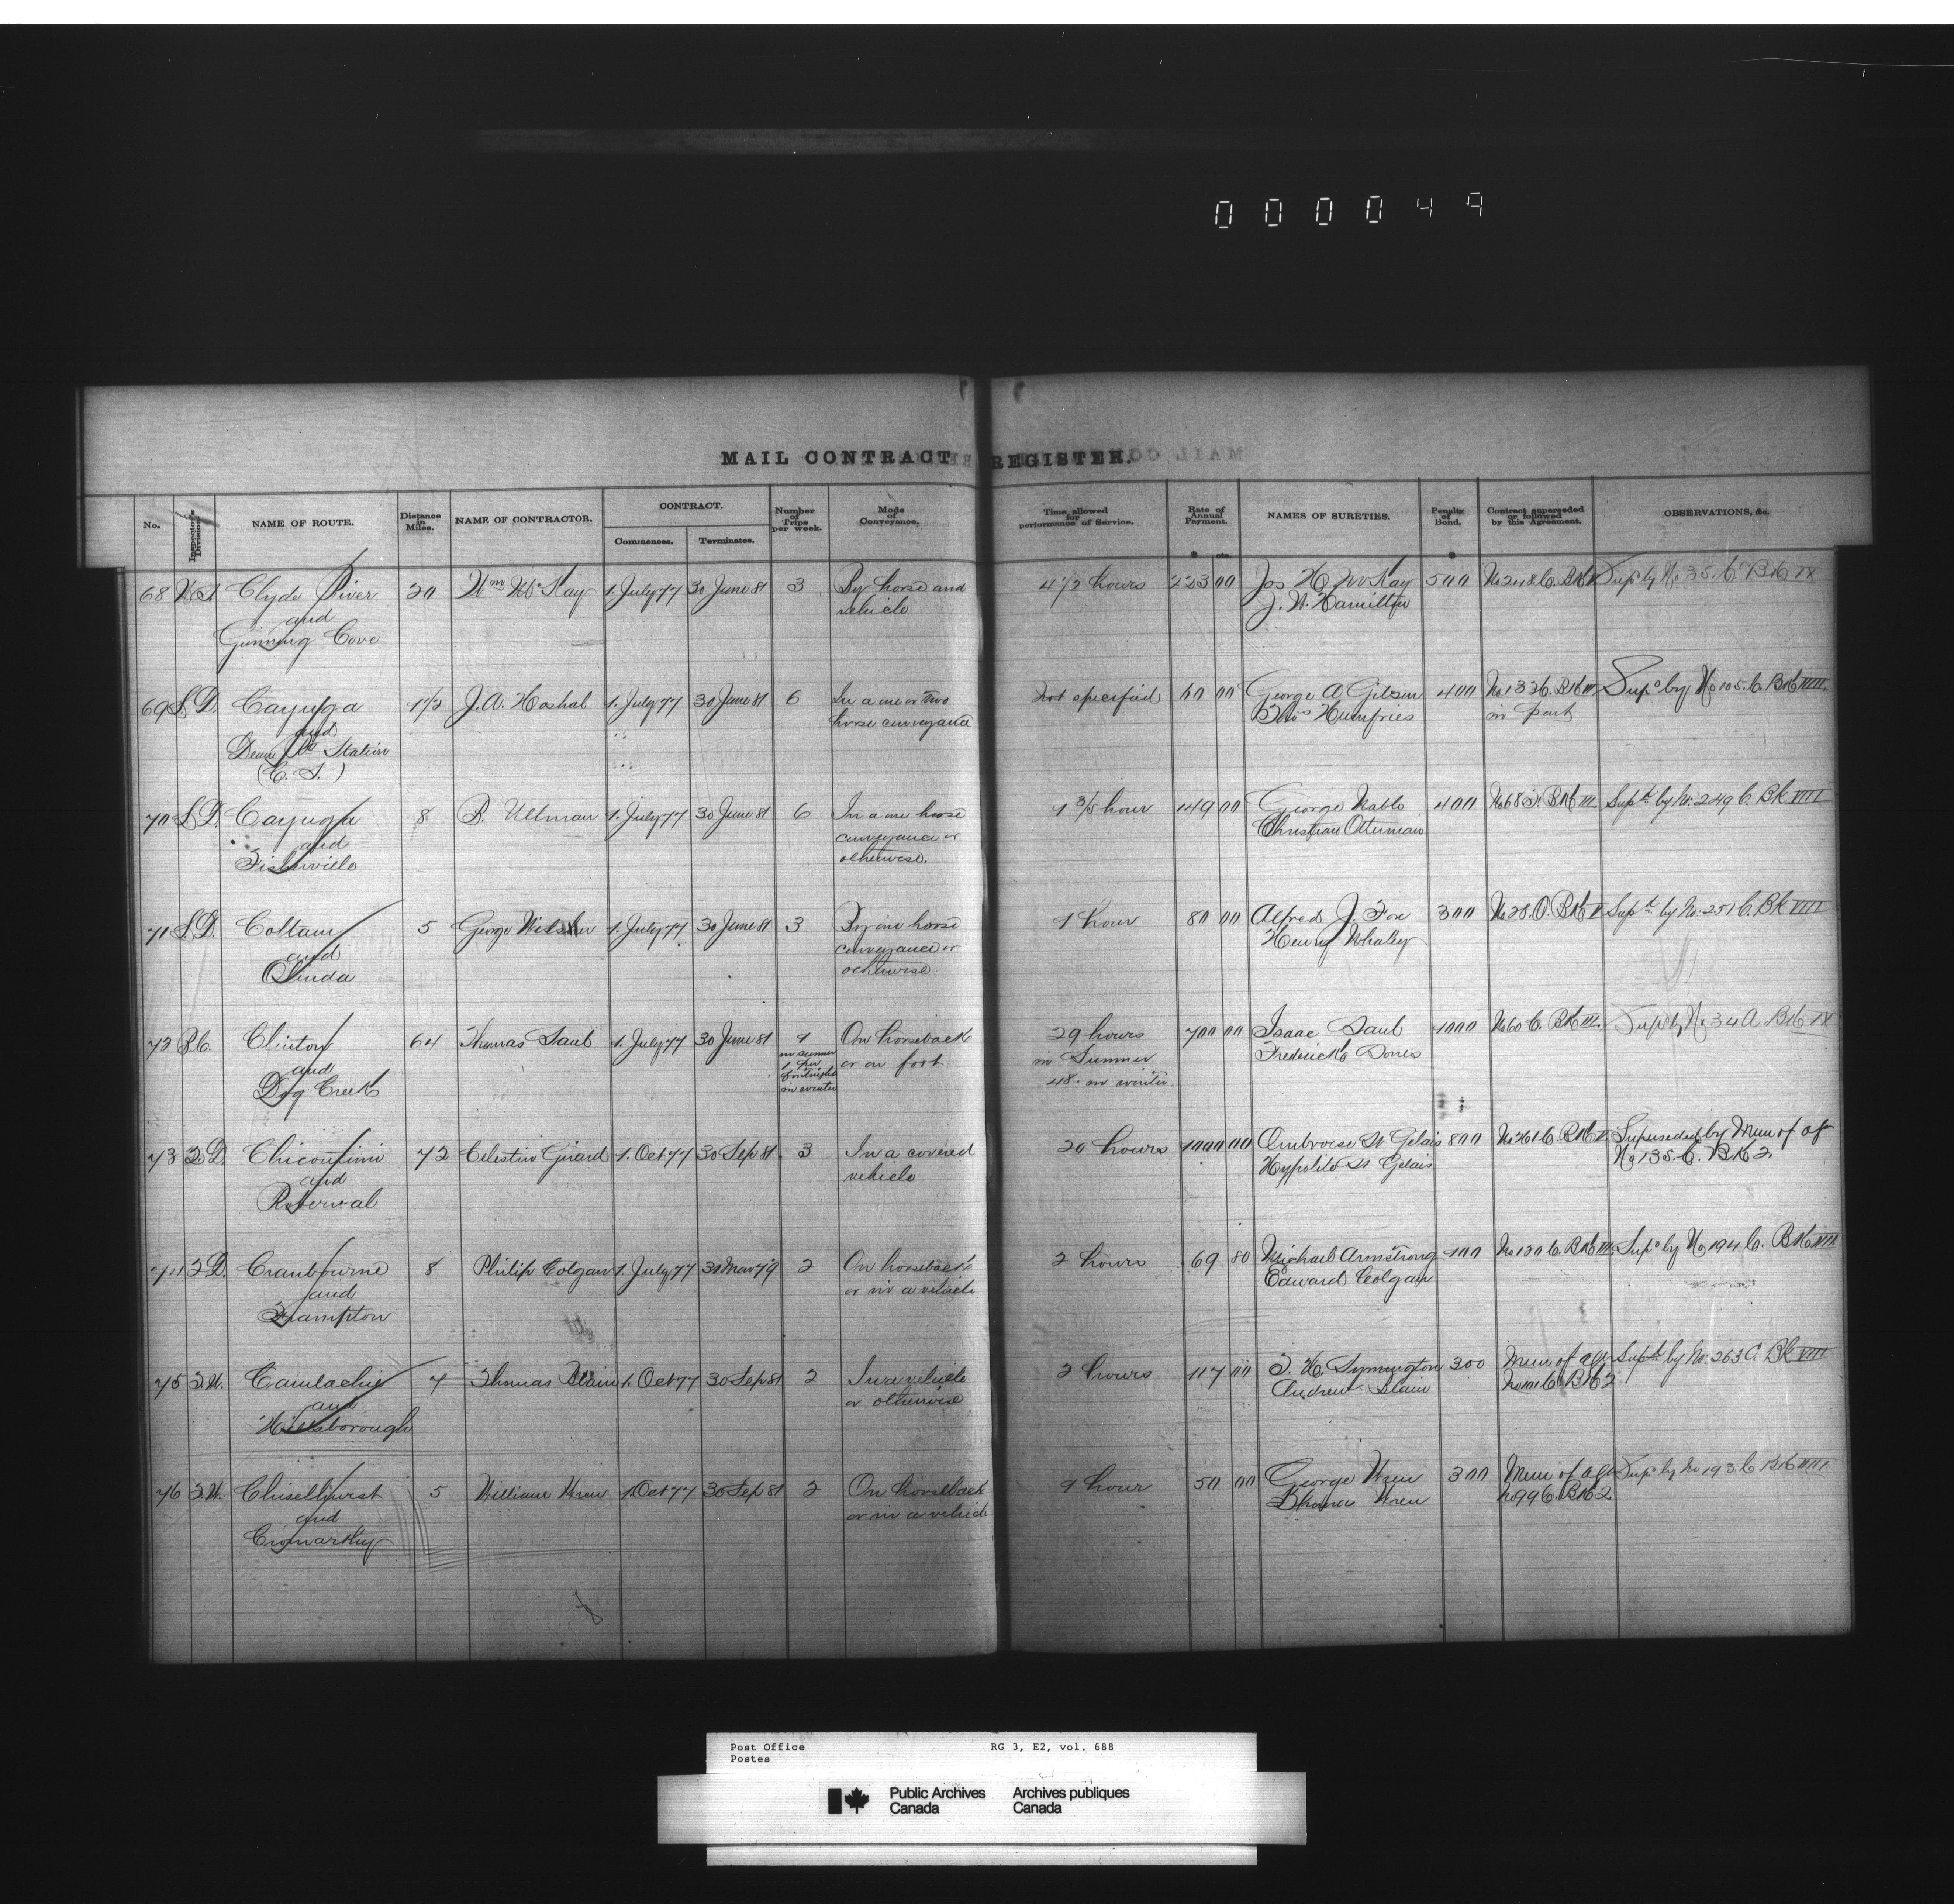 000049
MAIL CONTRACT REGISTER.
No. Inspector's Division. NAME OF ROUTE. Distance in Miles. NAME OF CONTRACTOR. CONTRACT. Commences. Terminates. Number of Trips per week. Mode of Conveyance. Time allowed for performance of Service. Rate of Annual Payment. $ cts. NAMES OF SURETIES. Penalty of Bond. $ Contract superseded or followed by this Agreement. OBSERVATIONS, &c.
68 N.S. Clyde River 20 Wm McKay 1. July 77 30 June 81 3 By horse and 4 1/2 hours 223 00 Jos H. McKay 500 No 248 C. Bk Supd by No 35. C. Bk IX
and vehicle J. W. Hamilton
Gunning Cove
69 L.D. Cayuga 1 1/2 J. A. Hoshal 1. July 77 30 June 81 6 In a one or two not specified 60 00 George A Gibson 400 No 133 C. Bk III Supd by No 105. C. Bk VIII.
and horse conveyance Humfries in part
Dean Station
(C. S.)
70 L.D. Cayuga 8 P. Ullman 1. July 77 30 June 81 6 In a one horse 1 3/5 hour 149 00 George Nablo 400 No 68 Bk III Supd by No. 249 C. Bk VIII
and conveyance or Christian Otterman
Fisherville otherwise.
71 L.D. Cottam 5 George 1. July 77 30 June 81 3 By one horse 1 hour 80 00 Alfred J. Fox 300 No 28. O. Bk Supd by No. 251 C. Bk VIII
and conveyance or Henry Whaley
Olinda otherwise.
72 B.C. Clinton 64 Thomas Saul 1. July 77 30 June 81 1 On horseback 29 hours 700 00 Isaac Saul 1000 No 60 C. Bk III. Supd by No 34 A Bk IX
and in summer or on foot in Summer Frederick
Dog Creek 1 per fortnight 48. in winter
in winter
73 Q.D. Chicoutimi 72 Celestin Girard 1. Oct 77 30 Sep 81 3 In a covered 20 hours 1000 00 Ambroise St Gelais 800 No 261 C. Bk Superseded by Mem of agr
and vehicle Hypolite St Gelais No 135. C. Bk 2.
Roberval
74 Q.D. Cranbourne 8 Philip Colgan 1. July 77 31 Mar 79 2 On horseback 2 hours 69 80 Michael Armstrong 100 No 120 C. Bk III. Supd by No 194 C. Bk VIII
and or in a vehicle Edward Colgan
Frampton
75 T.W. Camlachie 7 Thomas Blain 1. Oct 77 30 Sep 81 2 In a vehicle 2 hours 117 00 T. H. Symington 300 Mem of agr Supd by No. 263 C. Bk VIII
and or otherwise Andrew Blain C. Bk 2
Hillsborough
76 T.W. Chiselhurst 5 William Wren 1. Oct 77 30 Sep 81 2 On horseback 1 hour 50 00 George Wren 300 Mem of agr Supd by No 193 C Bk VIII
and or in a vehicle Thomas Wren No 99 C. Bk 2
Cromarty
Post Office RG 3, E2, vol. 688
Postes
Public Archives Archives publiques
Canada Canada